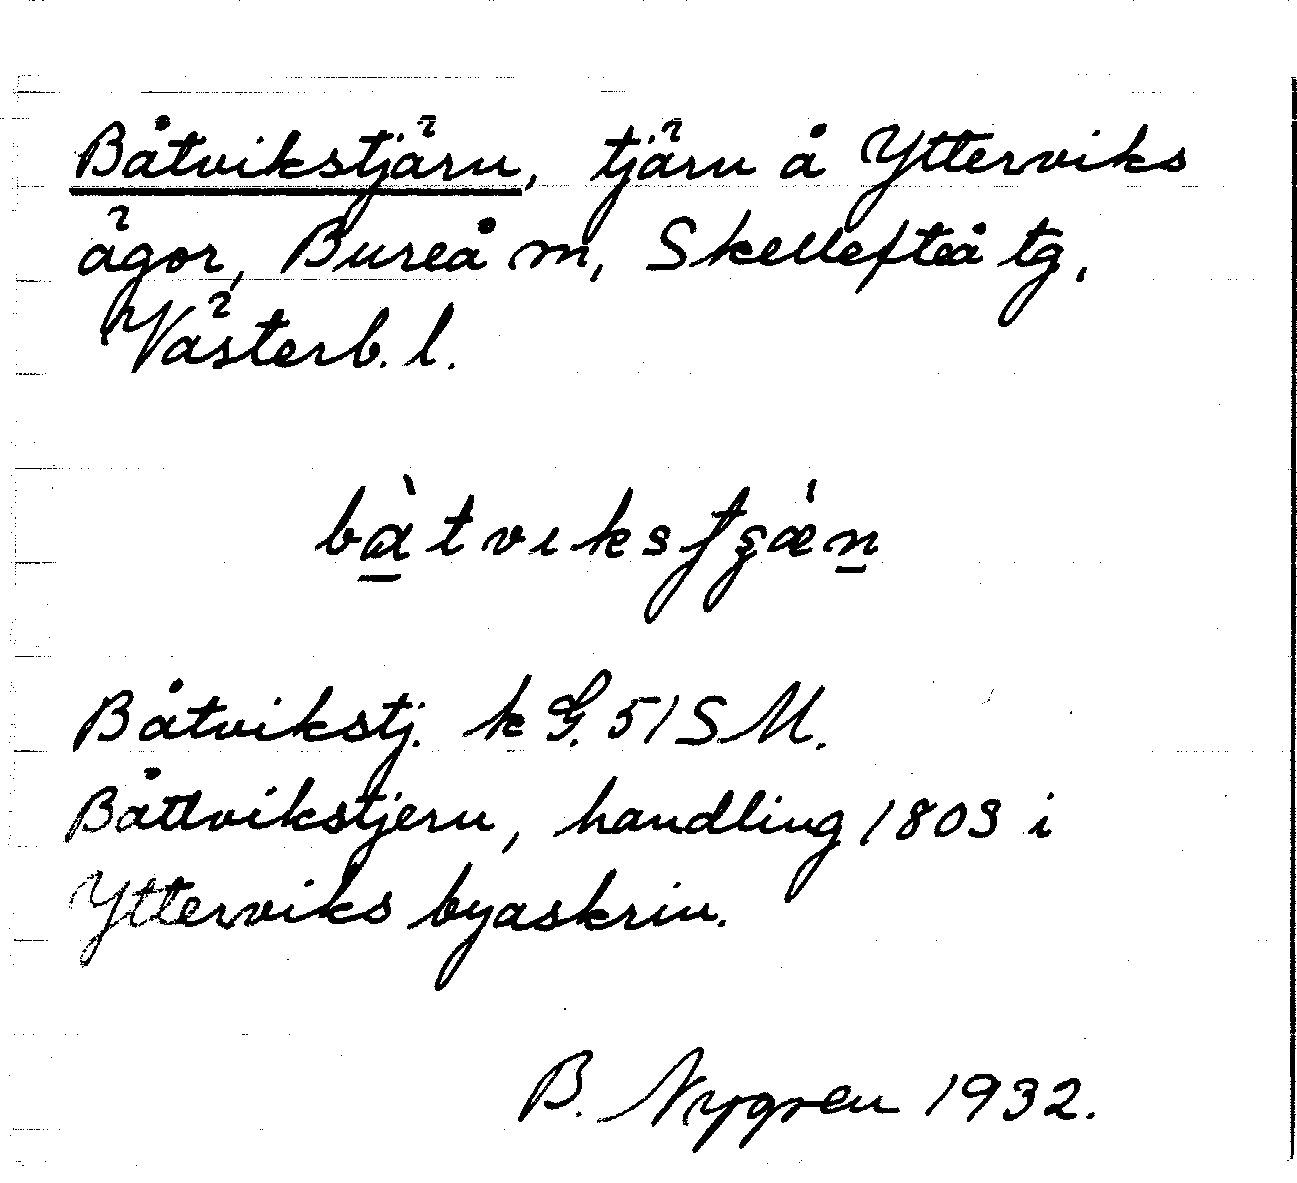 Båtvikstjärn, tjärn å Ytterviks
ägor, Bureå m, Skellefteå tg,
Västerb. l.
Båtvikstj. k G. 51 S M.
Båttvikstjern, handling 1803 i
Ytterviks byaskrin.
B. Nygren 1932.